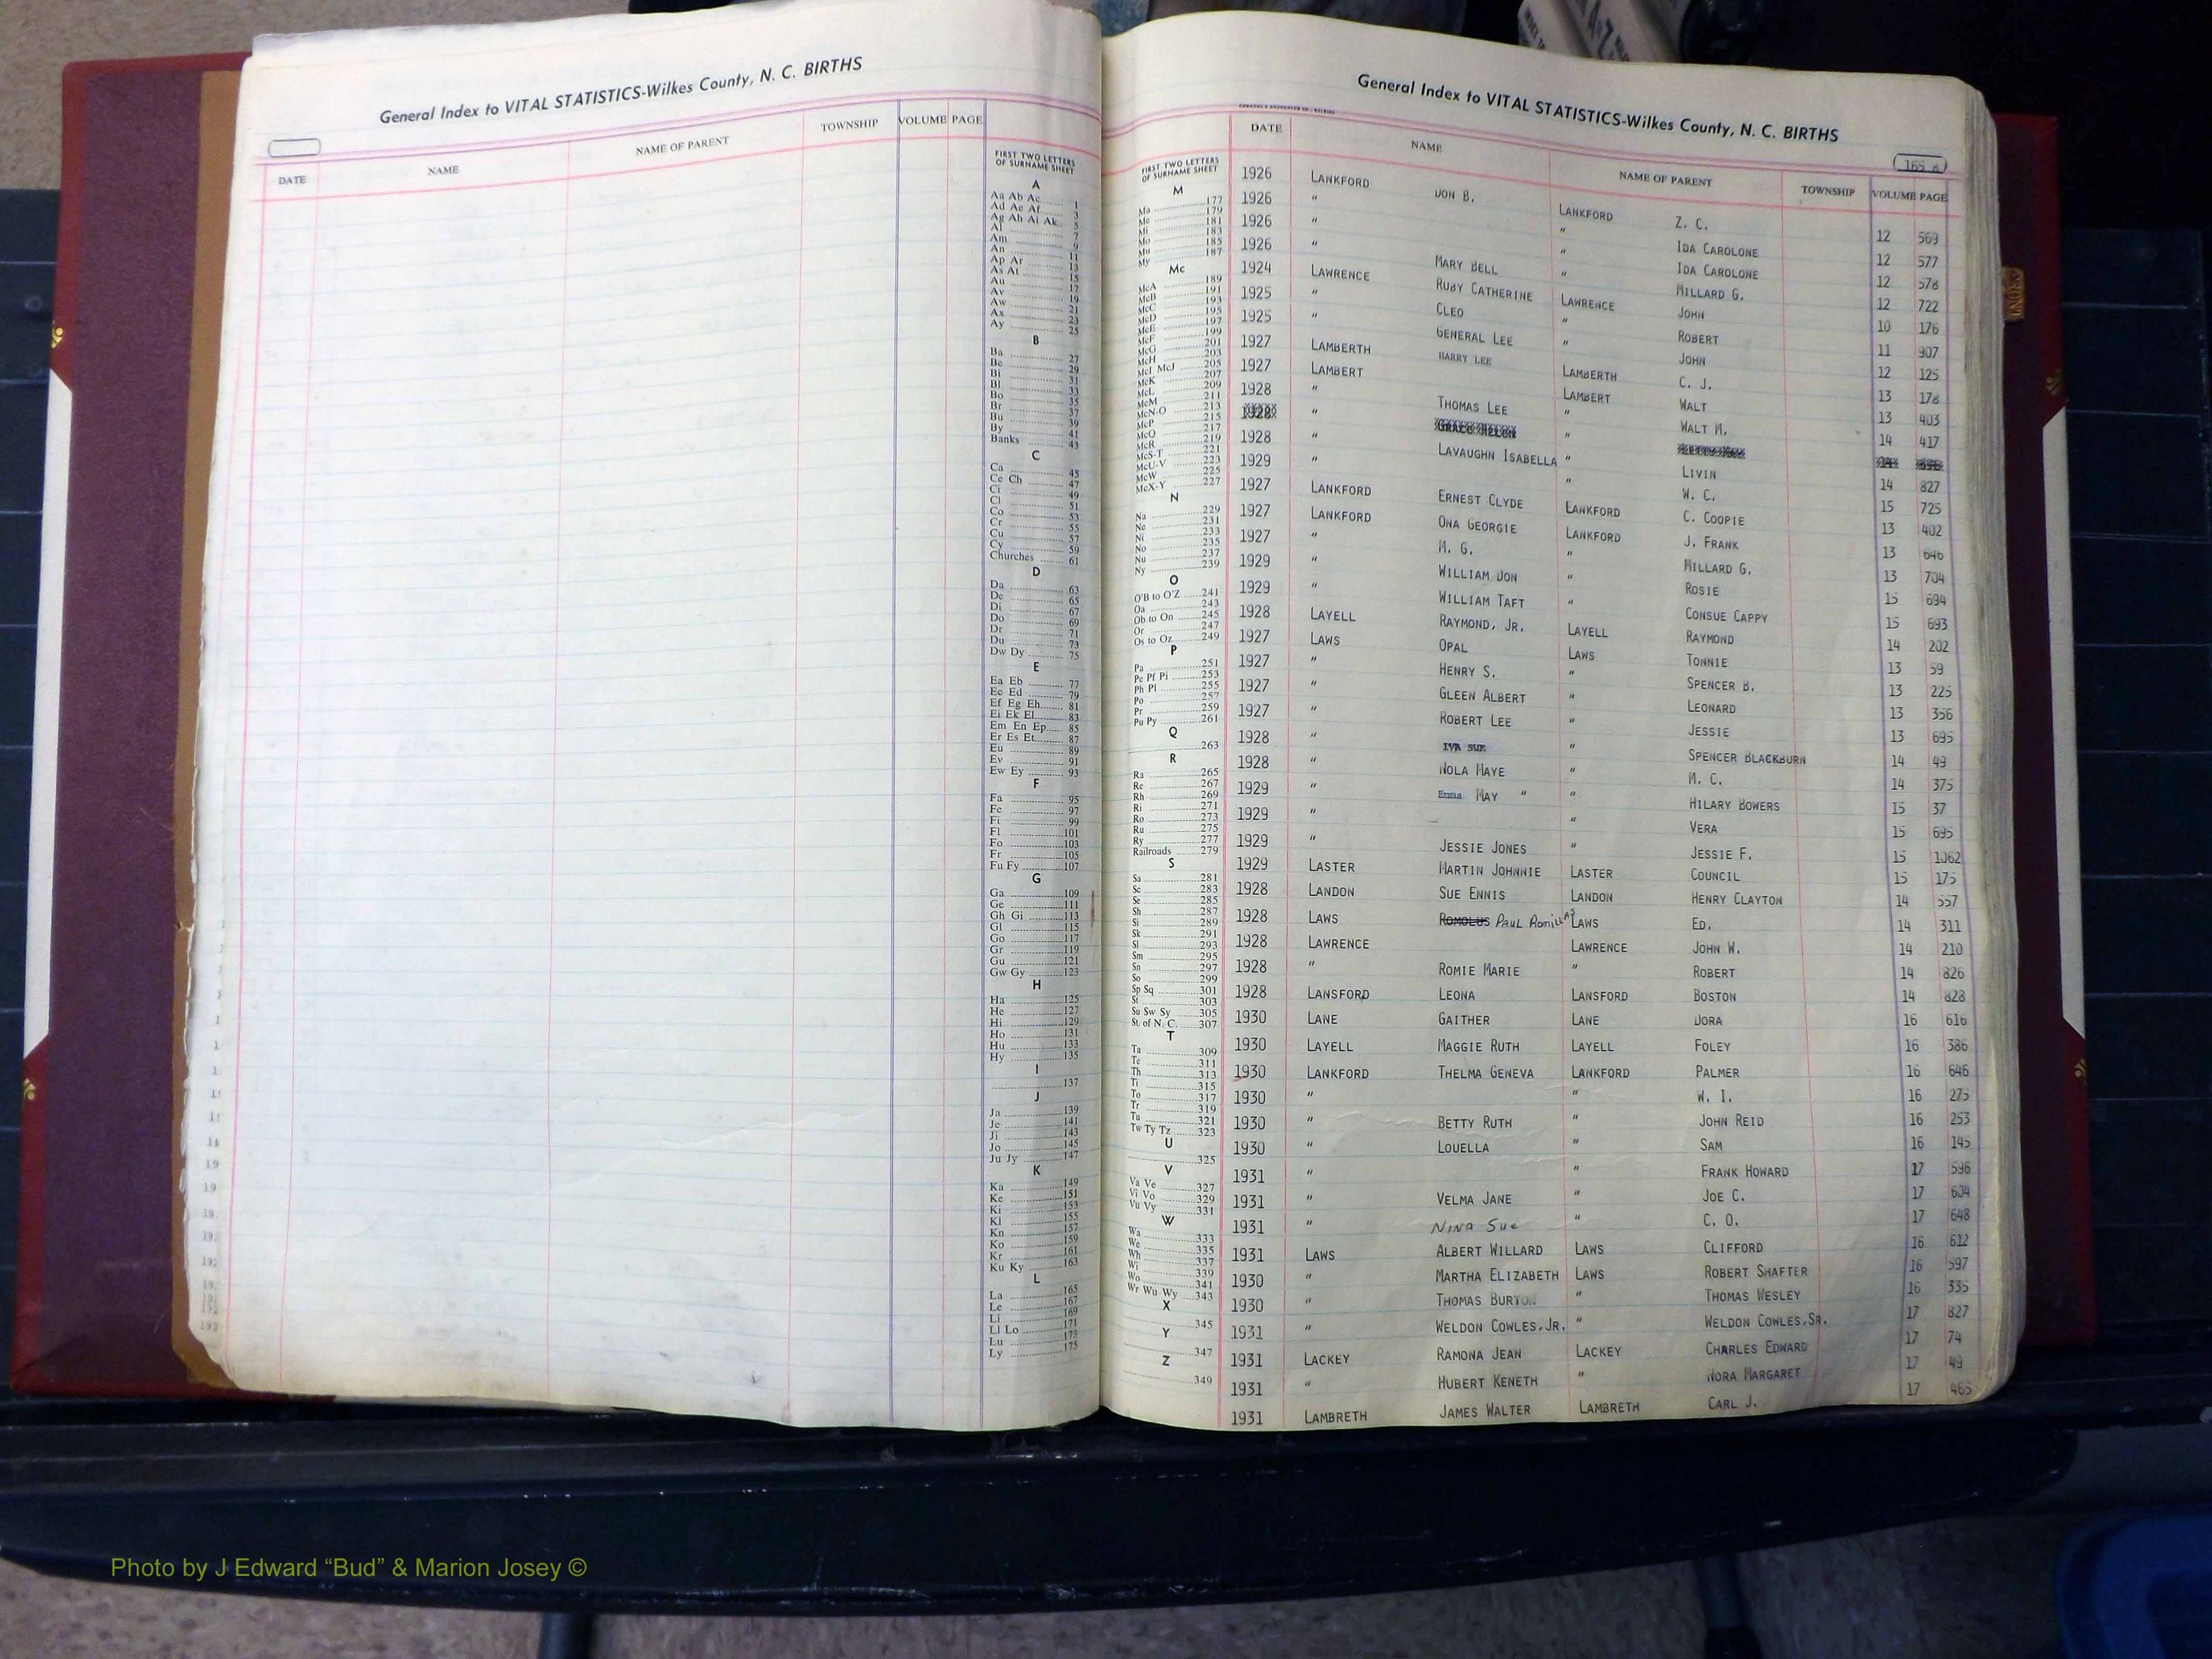 General Index to VITAL STATISTICS-Wilkes County, N. C. BIRTHS
DATE NAME NAME OF PARENT TOWNSHIP VOLUME PAGE
FIRST TWO LETTERS
OF SURNAME SHEET
A
Aa Ab Ac 1
Ad Ae Af 3
Ag Ah Ai Ak 5
Al 7
Am 9
An 11
Ap Ar 13
As At 15
Au 17
Av 19
Aw 21
Ax 23
Ay 25
B
Ba 27
Be 29
Bi 31
Bl 33
Bo 35
Br 37
Bu 39
By 41
Banks 43
C
Ca 45
Ce Ch 47
Ci 49
Cl 51
Co 53
Cr 55
Cu 57
Cy 59
Churches 61
D
Da 63
De 65
Di 67
Do 69
Dr 71
Du 73
Dw Dy 75
E
Ea Eb 77
Ec Ed 79
Ef Eg Eh 81
Ei Ek El 83
Em En Ep 85
Er Es Et 87
Eu 89
Ev 91
Ew Ey 93
F
Fa 95
Fe 97
Fi 99
Fl 101
Fo 103
Fr 105
Fu Fy 107
G
Ga 109
Ge 111
Gh Gi 113
Gl 115
Go 117
Gr 119
Gu 121
Gw Gy 123
H
Ha 125
He 127
Hi 129
Ho 131
Hu 133
Hy 135
I
137
J
Ja 139
Je 141
Ji 143
Jo 145
Ju Jy 147
K
Ka 149
Ke 151
Ki 153
Kl 155
Kn 157
Ko 159
Kr 161
Ku Ky 163
L
La 165
Le 167
Li 169
Ll Lo 171
Lu 173
Ly 175
General Index to VITAL STATISTICS-Wilkes County, N. C. BIRTHS
165
FIRST TWO LETTERS
OF SURNAME SHEET
M
Ma 177
Me 179
Mi 181
Mo 183
Mu 185
My 187
Mc
McA 189
McB 191
McC 193
McD 195
McE 197
McF 199
McG 201
McH 203
McI McJ 205
McK 207
McL 209
McM 211
McN-O 213
McP 215
McQ 217
McR 219
McS-T 221
McU-V 223
McW 225
McX-Y 227
N
Na 229
Ne 231
Ni 233
No 235
Nu 237
Ny 239
O
O'B to O'Z 241
Oa 243
Ob to On 245
Or 247
Os to Oz 249
P
Pa 251
Pe Pf Pi 253
Ph Pl 255
Po 257
Pr 259
Pu Py 261
Q
263
R
Ra 265
Re 267
Rh 269
Ri 271
Ro 273
Ru 275
Ry 277
Railroads 279
S
Sa 281
Sc 283
Se 285
Sh 287
Si 289
Sk 291
Sl 293
Sm 295
Sn 297
So 299
Sp Sq 301
St 303
Su Sw Sy 305
St. of N. C. 307
T
Ta 309
Te 311
Th 313
Ti 315
To 317
Tr 319
Tu 321
Tw Ty Tz 323
U
325
V
Va Ve 327
Vi Vo 329
Vu Vy 331
W
Wa 333
We 335
Wh 337
Wi 339
Wo 341
Wr Wu Wy 343
X
345
Y
347
Z
349
DATE NAME NAME OF PARENT TOWNSHIP VOLUME PAGE
1926 LANKFORD DON B. LANKFORD Z. C. 12 569
1926 " " IDA CAROLONE 12 577
1926 " " IDA CAROLONE 12 578
1926 " MARY BELL " MILLARD G. 12 722
1924 LAWRENCE RUBY CATHERINE LAWRENCE JOHN 10 176
1925 " CLEO " ROBERT 11 907
1925 " GENERAL LEE " JOHN 12 125
1927 LAMBERTH HARRY LEE LAMBERTH C. J. 13 178
1927 LAMBERT LAMBERT WALT 13 403
1928 " THOMAS LEE " WALT M. 14 417
1928 " GRACE HELEN "
1928 " LAVAUGHN ISABELLA " LIVIN 14 827
1929 " " W. C. 15 725
1927 LANKFORD ERNEST CLYDE LANKFORD C. COOPIE 13 402
1927 LANKFORD ONA GEORGIE LANKFORD J. FRANK 13 646
1927 " M. G. " MILLARD G. 13 704
1929 " WILLIAM DON " ROSIE 15 694
1929 " WILLIAM TAFT " CONSUE CAPPY 15 693
1928 LAYELL RAYMOND, JR. LAYELL RAYMOND 14 202
1927 LAWS OPAL LAWS TONNIE 13 59
1927 " HENRY S. " SPENCER B. 13 225
1927 " GLEEN ALBERT " LEONARD 13 356
1927 " ROBERT LEE " JESSIE 13 695
1928 " IVA SUE " SPENCER BLACKBURN 14 49
1928 " NOLA MAYE " M. C. 14 375
1929 " Emma MAY " " HILARY BOWERS 15 37
1929 " " VERA 15 695
1929 " JESSIE JONES " JESSIE F. 15 1062
1929 LASTER MARTIN JOHNNIE LASTER COUNCIL 15 175
1928 LANDON SUE ENNIS LANDON HENRY CLAYTON 14 557
1928 LAWS ROMOLUS PAUL Romillas LAWS ED. 14 311
1928 LAWRENCE LAWRENCE JOHN W. 14 210
1928 " ROMIE MARIE " ROBERT 14 826
1928 LANSFORD LEONA LANSFORD BOSTON 14 828
1930 LANE GAITHER LANE DORA 16 616
1930 LAYELL MAGGIE RUTH LAYELL FOLEY 16 386
1930 LANKFORD THELMA GENEVA LANKFORD PALMER 16 646
1930 " " W. I. 16 275
1930 " BETTY RUTH " JOHN REID 16 253
1930 " LOUELLA " SAM 16 145
1931 " " FRANK HOWARD 17 596
1931 " VELMA JANE " JOE C. 17 604
1931 " NINA Sue " C. O. 17 648
1931 LAWS ALBERT WILLARD LAWS CLIFFORD 16 612
1930 " MARTHA ELIZABETH LAWS ROBERT SHAFTER 16 597
1930 " THOMAS BURTON " THOMAS WESLEY 16 335
1931 " WELDON COWLES, JR. " WELDON COWLES, SR. 17 827
1931 LACKEY RAMONA JEAN LACKEY CHARLES EDWARD 17 74
1931 " HUBERT KENETH " NORA MARGARET 17 49
1931 LAMBRETH JAMES WALTER LAMBRETH CARL J. 17 465
Photo by J Edward “Bud” & Marion Josey ©